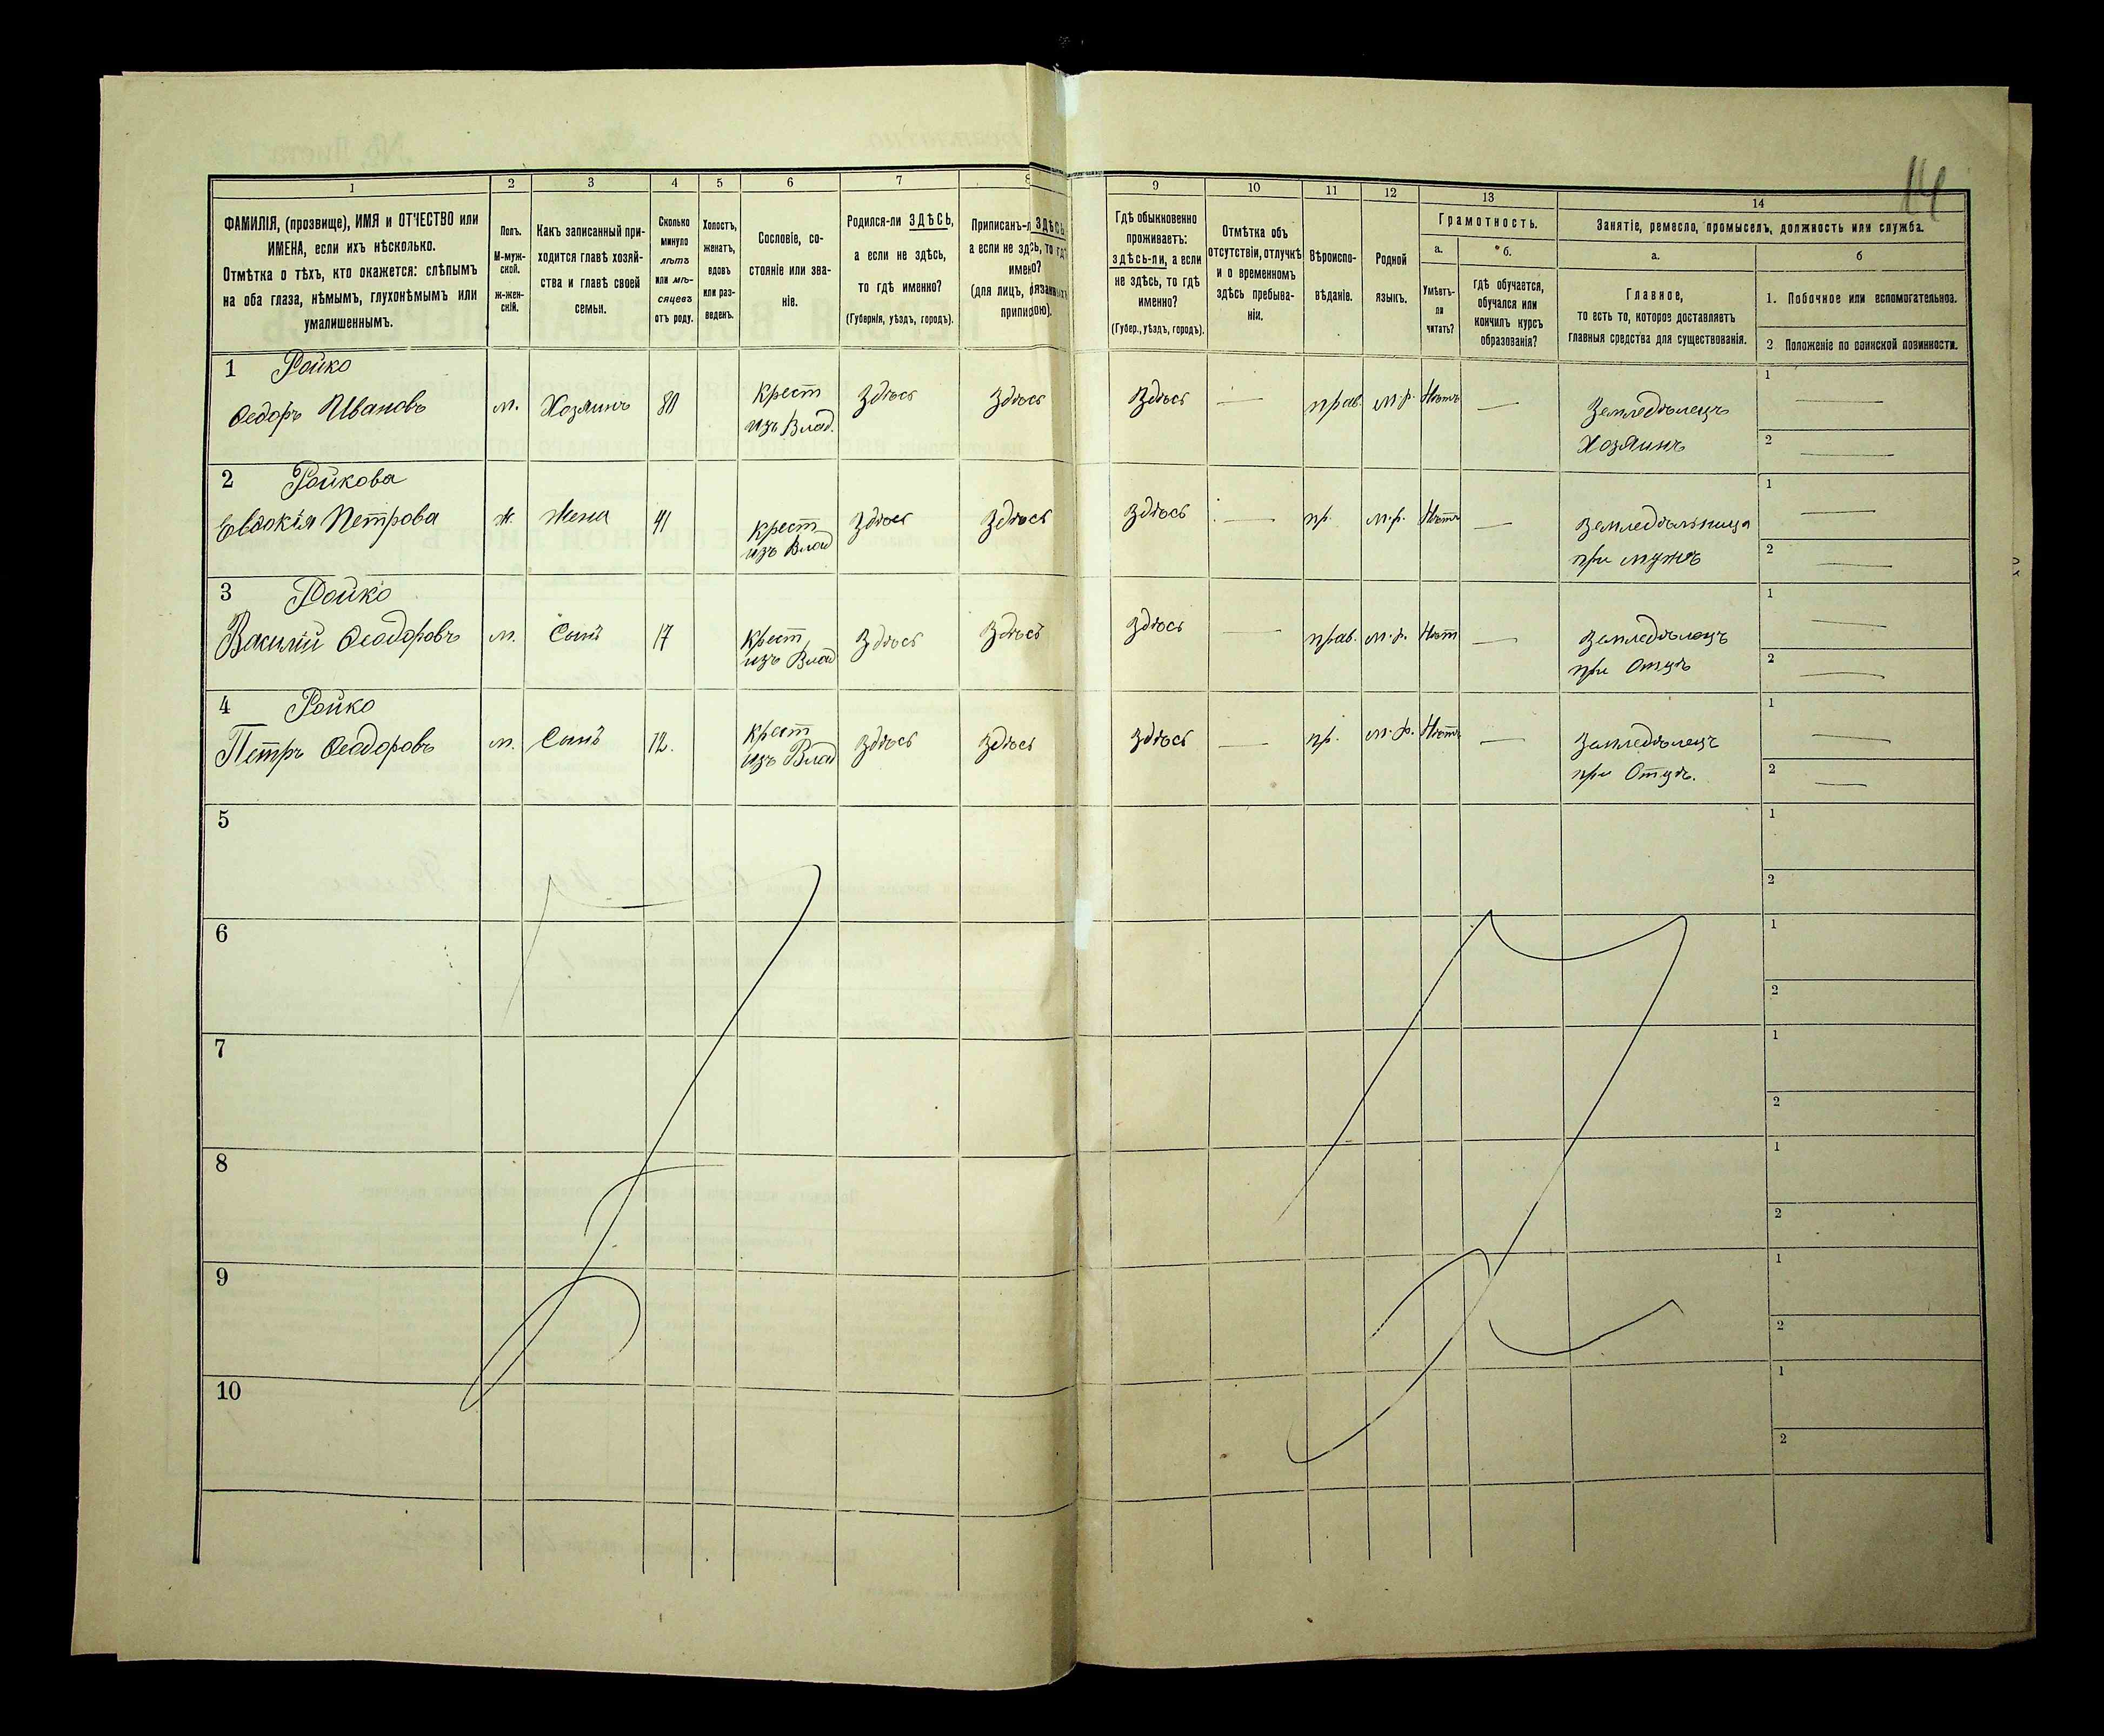 14
1 2 3 4 5 6 7 8 9 10 11 12 13 14
ФАМИЛІЯ, (прозвище), ИМЯ и ОТЧЕСТВО или
ИМЕНА, если ихъ нѣсколько.
Отмѣтка о тѣхъ, кто окажется: слѣпымъ
на оба глаза, нѣмымъ, глухонѣмымъ или
умалишеннымъ.
Полъ.
М-муж-
ской.
Ж-жен-
скій.
Какъ записанный при-
ходится главѣ хозяй-
ства и главѣ своей
семьи.
Сколько
минуло
лѣтъ
или мѣ-
сяцевъ
отъ роду.
Холостъ,
женатъ,
вдовъ
или раз-
веденъ.
Сословіе, со-
стояніе или зва-
ніе.
Родился-ли ЗДѢСЬ,
а если не здѣсь,
то гдѣ именно?
(Губернія, уѣздъ, городъ).
Приписанъ-л ЗДѢСЬ,
а если не здѣсь, то гдѣ
именно?
(для лицъ, обязанныхъ
припискою).
Гдѣ обыкновенно
проживаетъ:
здѣсь-ли, а если
не здѣсь, то гдѣ
именно?
(Губер., уѣздъ, городъ).
Отмѣтка объ
отсутствіи, отлучкѣ
и о временномъ
здѣсь пребыва-
ніи.
Вѣроиспо-
вѣданіе.
Родной
языкъ.
Грамотность.
а.
Умѣетъ-
ли
читать?
*б.
гдѣ обучается,
обучался или
кончилъ курсъ
образованія?
Занятіе, ремесло, промыселъ, должность или служба.
а.
Главное,
то есть то, которое доставляетъ
главныя средства для существованія.
б
1. Побочное или вспомогательное.
2 Положеніе по воинской повинности.
1 Ройко
Ѳедоръ Ивановъ м. Хозяинъ 80 Крест Здѣсь Здѣсь Здѣсь — прав. м.р. Нѣтъ — Земледѣлецъ 1 —
изъ Влад. Хозяинъ 2 —
2 Ройкова
Евдокія Петрова ж. Жена 41 Крест Здѣсь Здѣсь Здѣсь — пр. м.р. Нѣтъ — Земледѣльница 1 —
изъ Влад при мужѣ 2 —
3 Ройко
Василій Ѳеодоровъ м. Сынъ 17 Крест Здѣсь Здѣсь Здѣсь — прав. м.р. Нѣт — Земледѣлецъ 1 —
изъ Влад при Отцѣ 2 —
4 Ройко
Петръ Ѳеодоровъ м. Сынъ 12. Крест Здѣсь Здѣсь Здѣсь — пр. м.р. Нѣтъ — Земледѣлецъ 1 —
изъ Влад при Отцѣ. 2 —
5 1
2
6 1
2
7 1
2
8 1
2
9 1
2
10 1
2